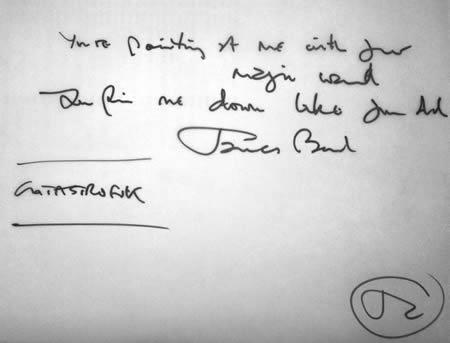 You're pointing at me with your
magic wand
You pin me down like you did
James Bond
CATASTROFUK